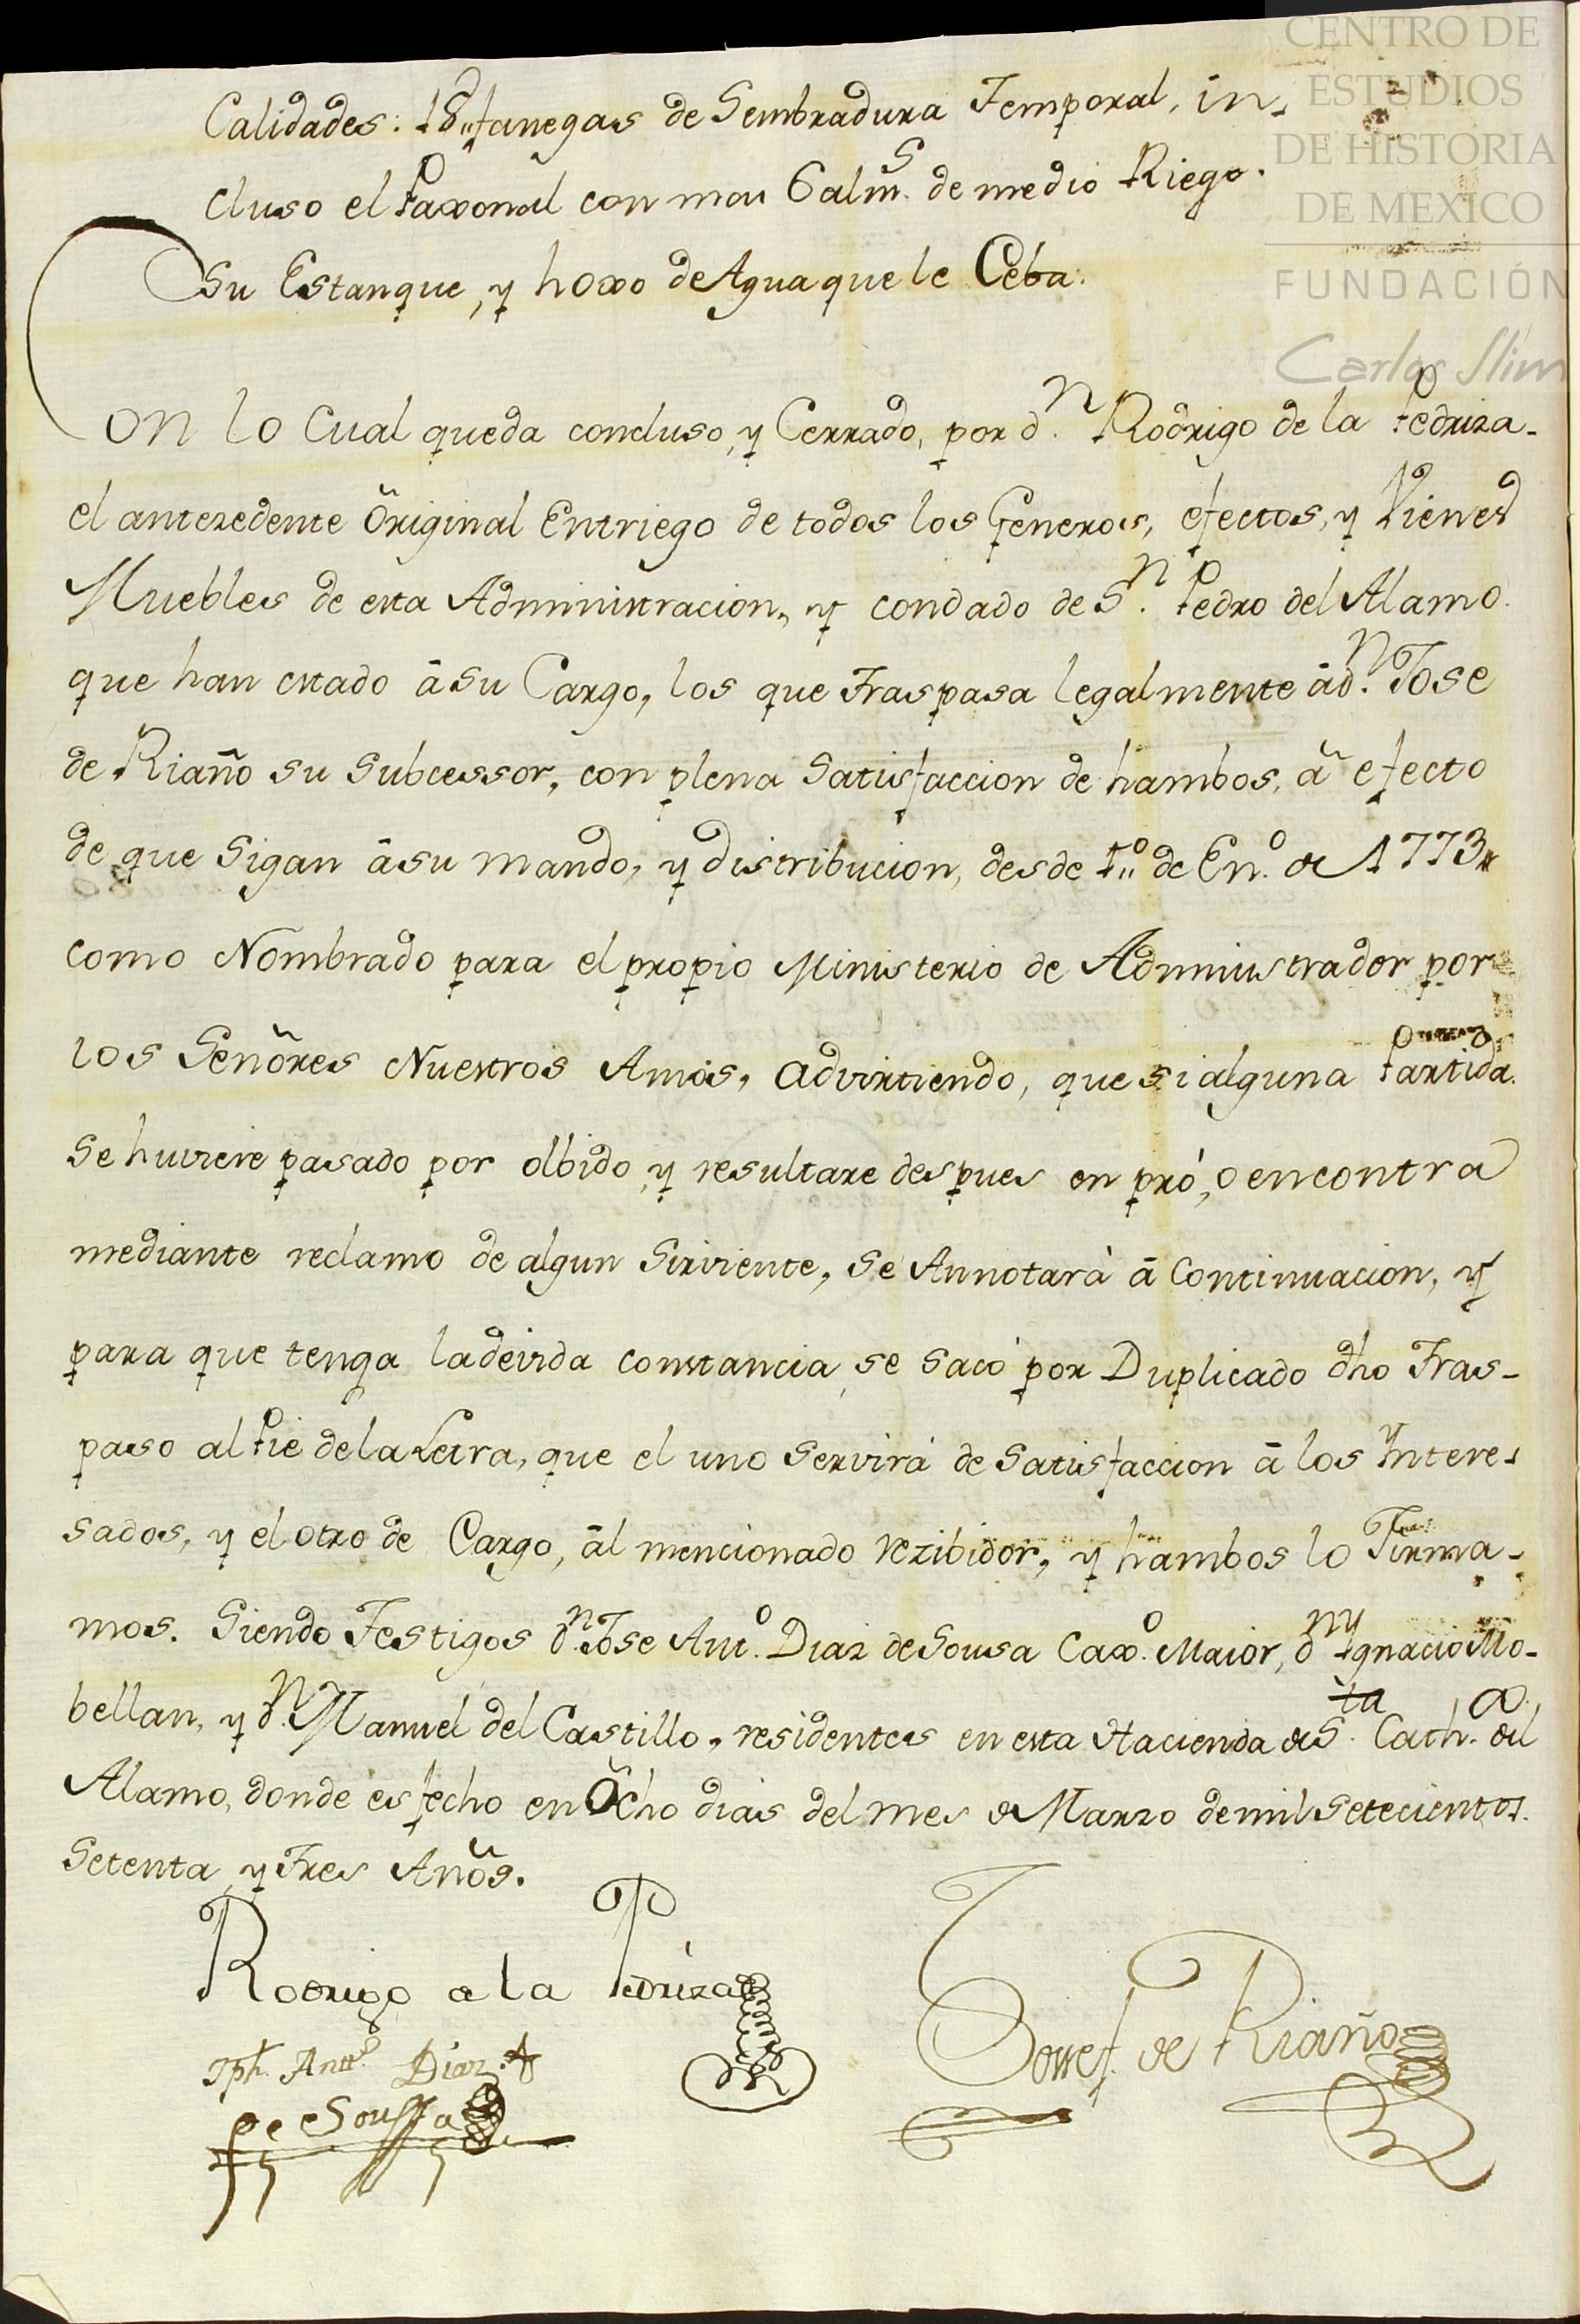 CENTRO DE
ESTUDIOS
DE HISTORIA
DE MEXICO
FUNDACIÓN
Carlos Slim
Calidades: 18,, fanegas de Sembradura Temporal, in-
cluso el Paxonal con mas 6 alms. de medio Riego.
Su Estanque, y hoxo de Agua que le Ceba.
Con lo Cual queda concluso, y Cerrado, por dn. Rodrigo de la Pedriza
el antezedente Original Entriego de todos los Generos, efectos, y Vienes
Muebles de esta Administracion, y condado de Sn. Pedro del Alamo
que han estado â su Cargo, los que Traspasa legalmente â dn. Jose
de Riaño su Subcessor, con plena Satisfaccion de hambos, â efecto
de que Sigan â su mando, y distribucion, desde 1,,o de Eno. de 1773,,
como Nombrado para el propio Ministerio de Administrador por
los Señores Nuestros Amos, advirtiendo, que si alguna Partida
se huviere pasado por olbido, y resultare despues en pró, o en contra
mediante reclamo de algun Sirviente, se Annotará â Continuacion, y
para que tenga la devida constancia, se sacó por Duplicado dho Tras-
paso al Pie de la Letra, que el uno Servirá de Satisfaccion â los Intere-
sados, y el otro de Cargo, âl mencionado rezibidor, y hambos lo Firma-
mos. Siendo Testigos dn. Jose Anto. Diaz de Sousa Caxo. Maior, dn Ygnacio Mo-
bellan, y dn. Manuel del Castillo, residentes en esta Hacienda de Sta. Catha. del
Alamo, donde es fecho en Ôcho dias del mes de Marzo de mil Setecientos.
Setenta y Tres Años.
Rodrigo de la Pedriza
Jossef de Riaño
Jph. Antto. Diaz
de Soussa